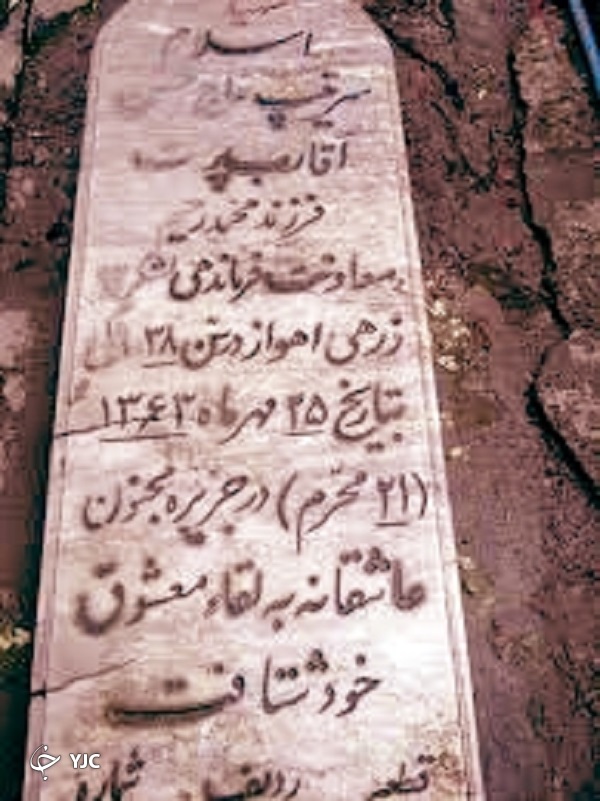 اسلام
سرتیپ
آقارب پرست
فرزند محمدرحیم
معاونت فرماندهی لشکر
زرهی اهواز در سن ۳۸
بتاریخ ۲۵ مهر ماه ۱۳۶۳
(۲۱ محرّم) در جزیره مجنون
عاشقانه به لقاء معشوق
خود شتافت
قطعه ردیف شماره
YJC